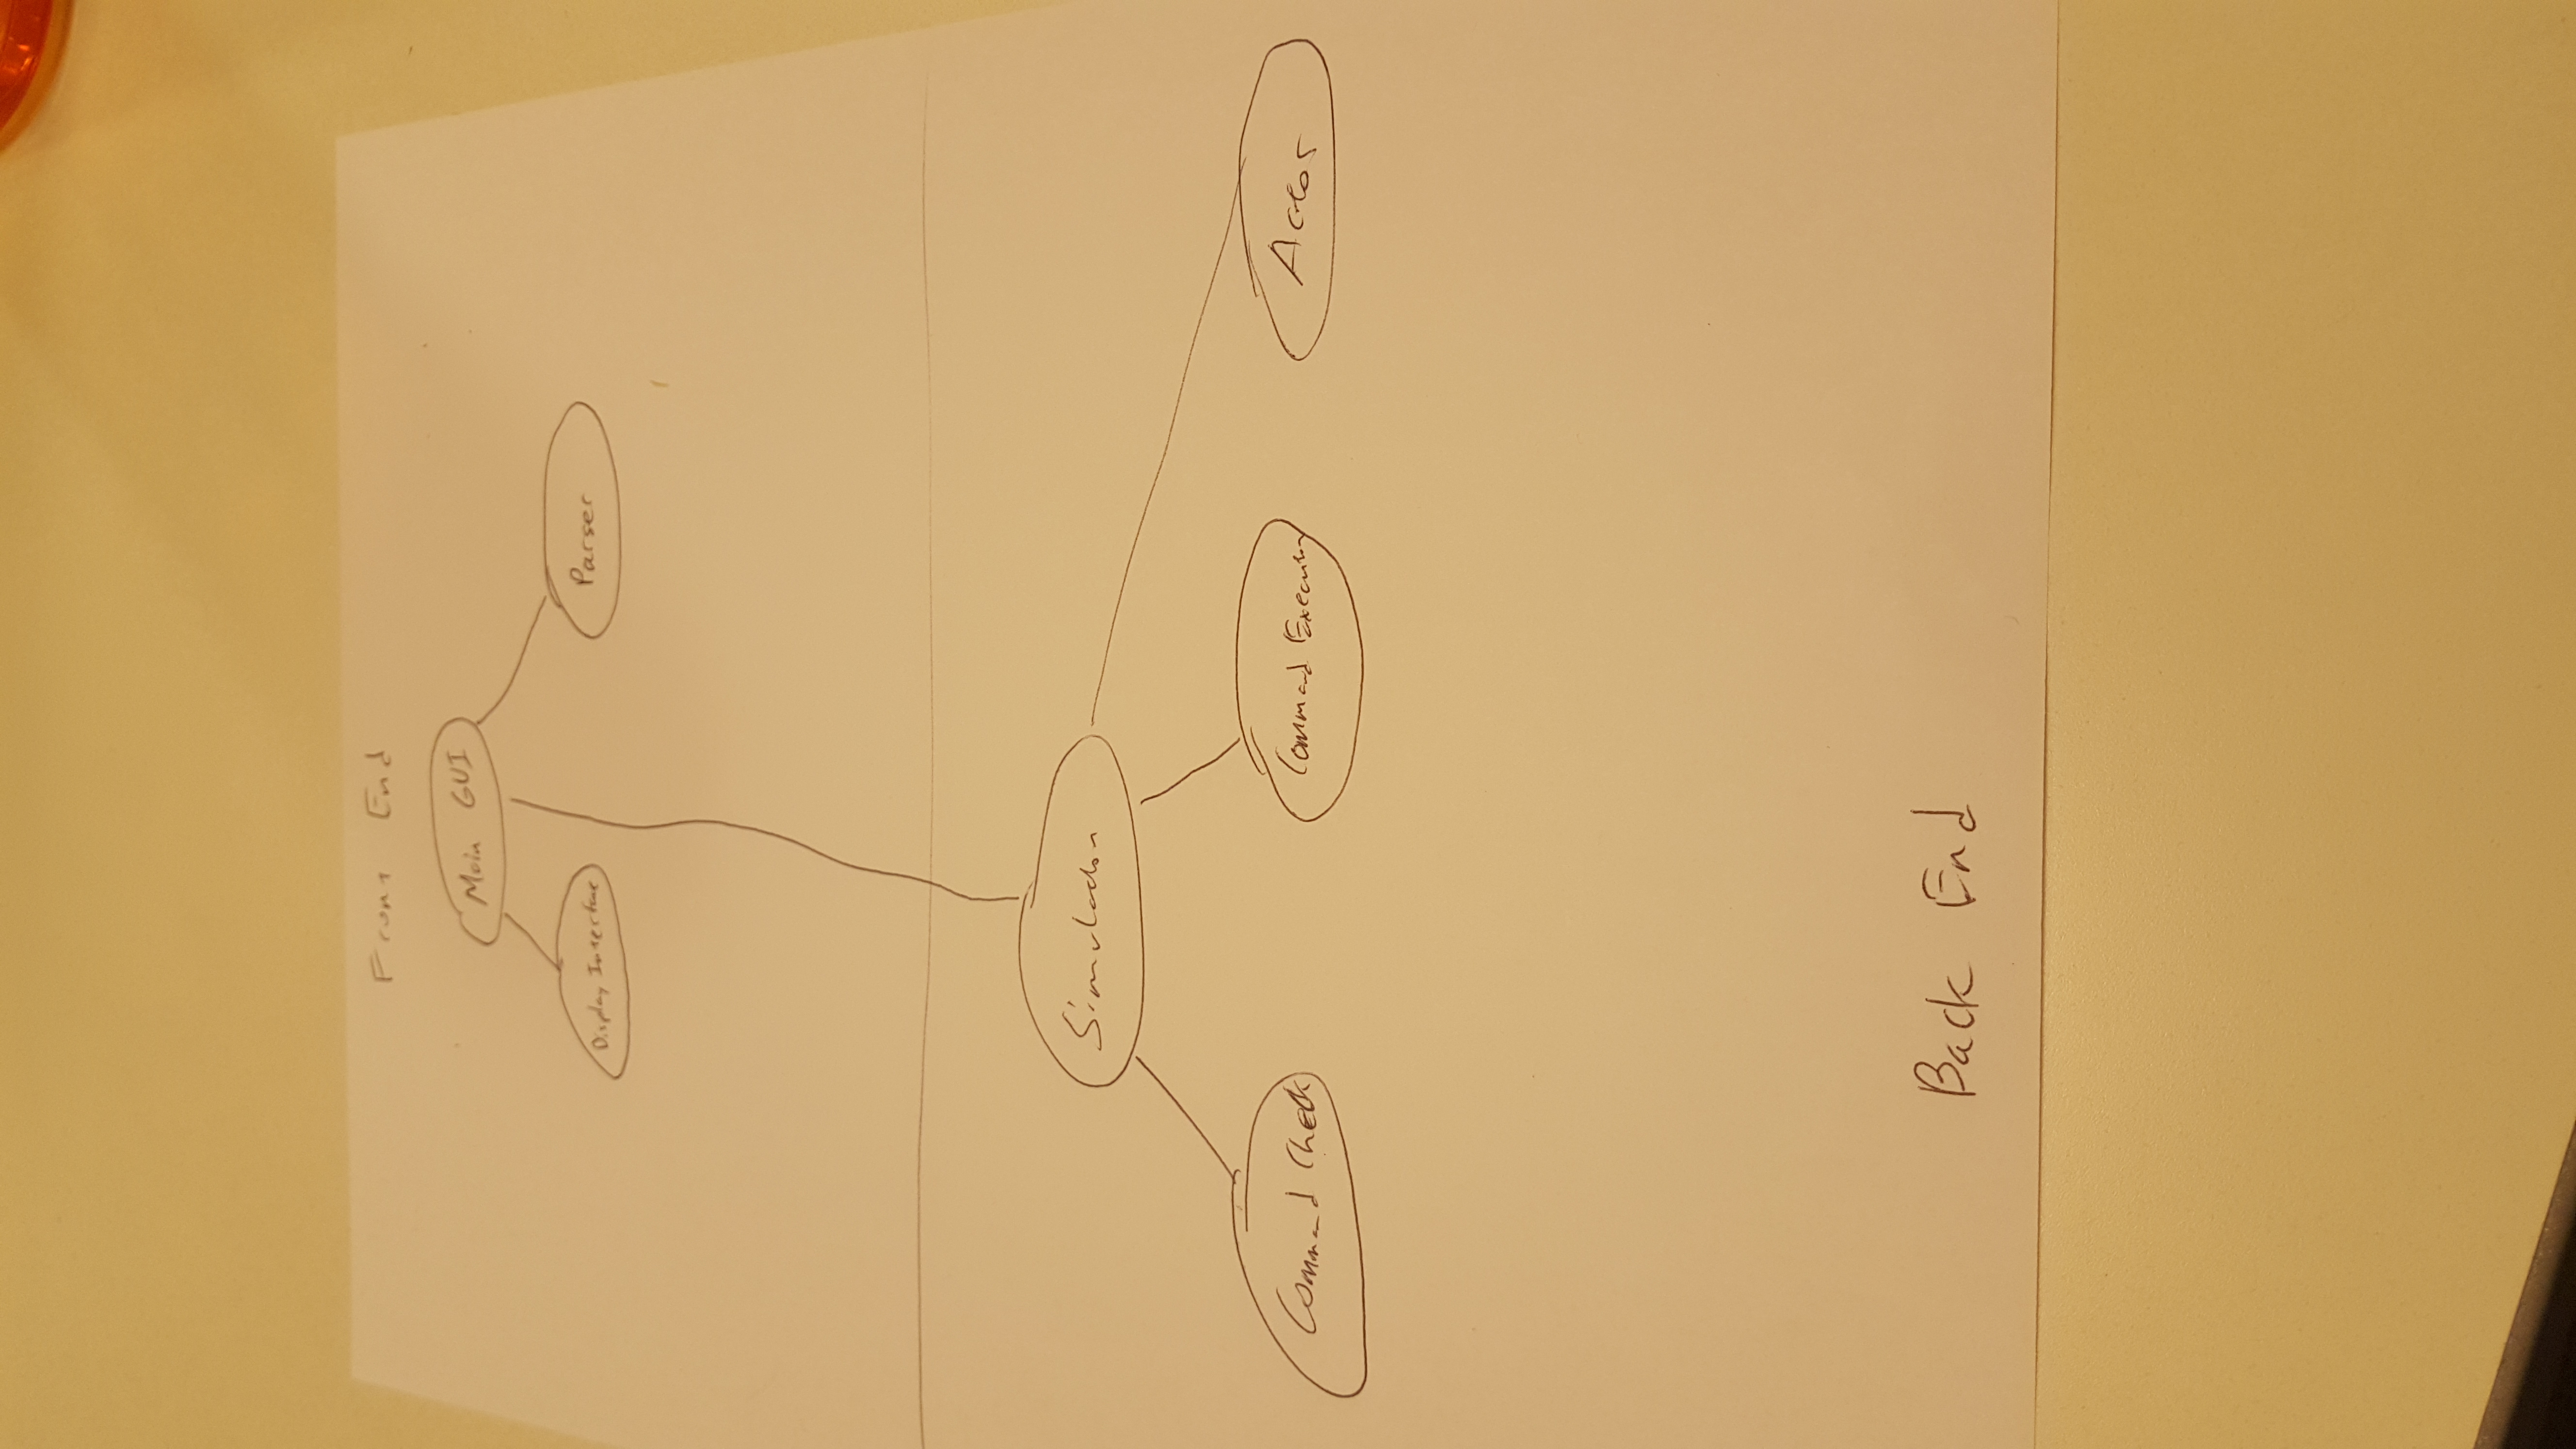 Front End
Main GUI
Display Interface
Parser
Simulation
Command Check
Command Execution
Actor
Back End